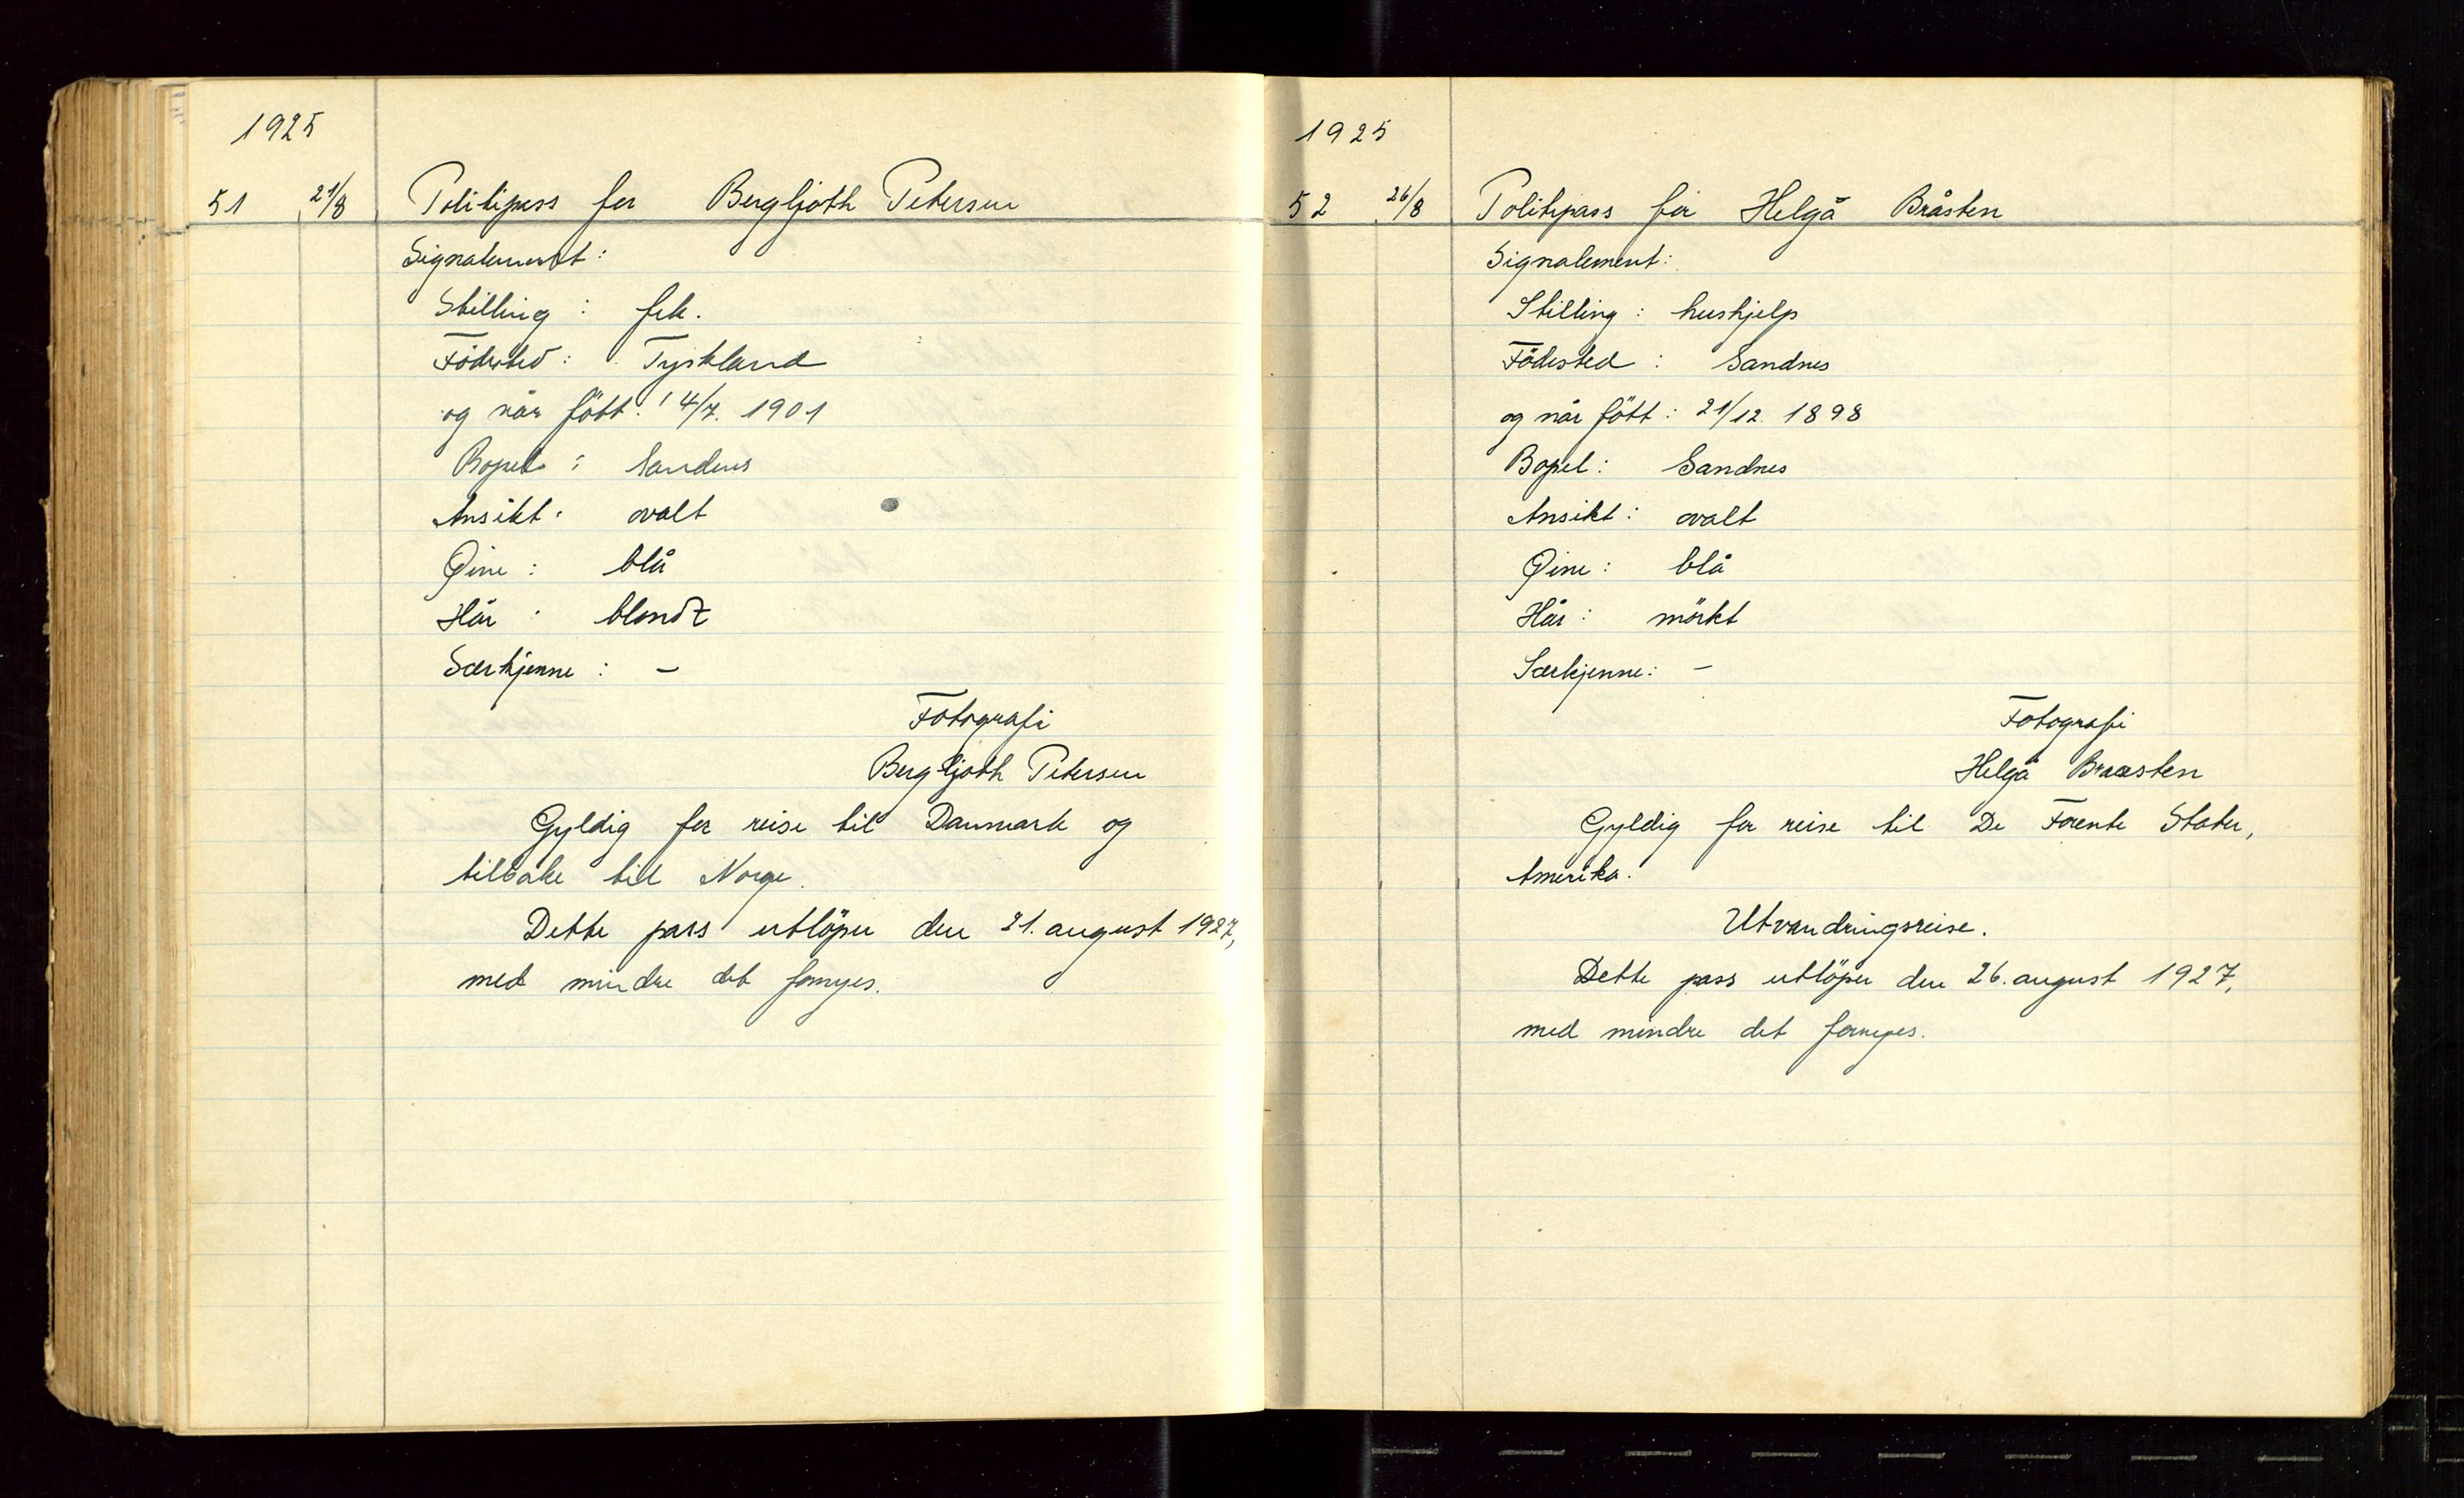 1925
51 21/8 Politipass for Bergljoth Petersen
Signalement:
Stilling: frk.
Födested: Tyskland
og når fött: 14/7. 1901
Bopel: Sandnes
Ansikt: ovalt
Øine: blå
Hår: blondt
Særkjenne: –
Fotografi
Bergljoth Petersen
Gyldig for reise til Danmark og
tilbake til Norge.
Dette pass utlöper den 21. august 1927,
med mindre det fornyes.
1925
52 26/8 Politipass for Helgå Bråsten
Signalement:
Stilling: hushjelp
Födested: Sandnes
og når fött: 21/12. 1898
Bopel: Sandnes
Ansikt: ovalt
Øine: blå
Hår: mörkt
Særkjenne: –
Fotografi
Helgå Braasten
Gyldig for reise til De Forente Stater,
Amerika.
Utvandringsreise.
Dette pass utlöper den 26. august 1927,
med mindre det fornyes.